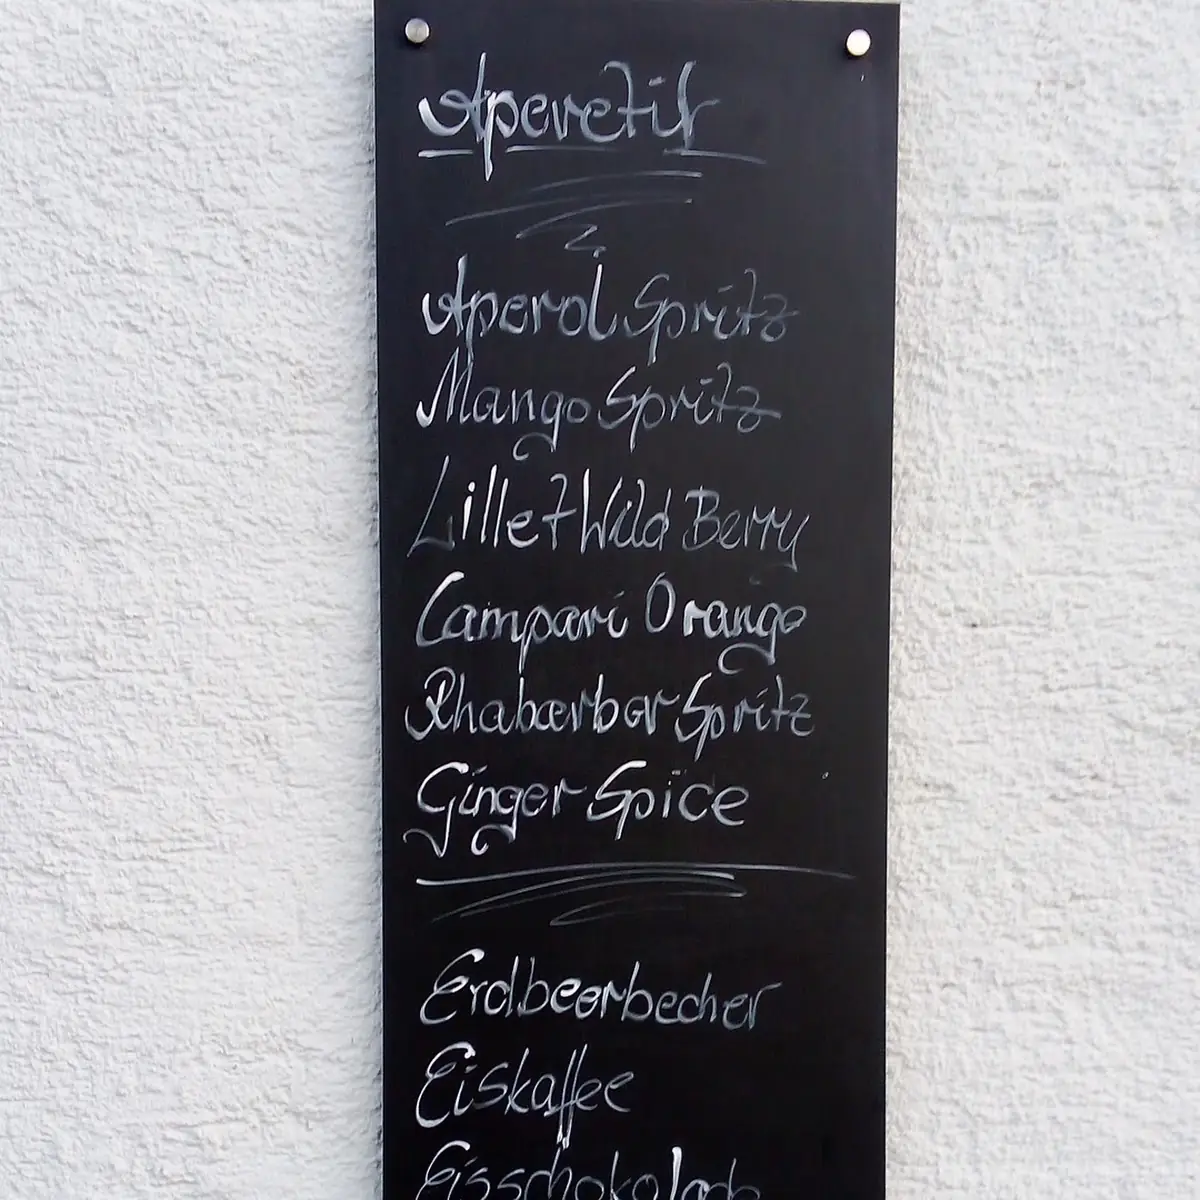 Aperetif
Aperol Spritz
Mango Spritz
Lillet Wild Berry
Campari Orange
Rhabarber Spritz
Ginger Spice
Erdbeerbecher
Eiskaffee
Eisschokolade